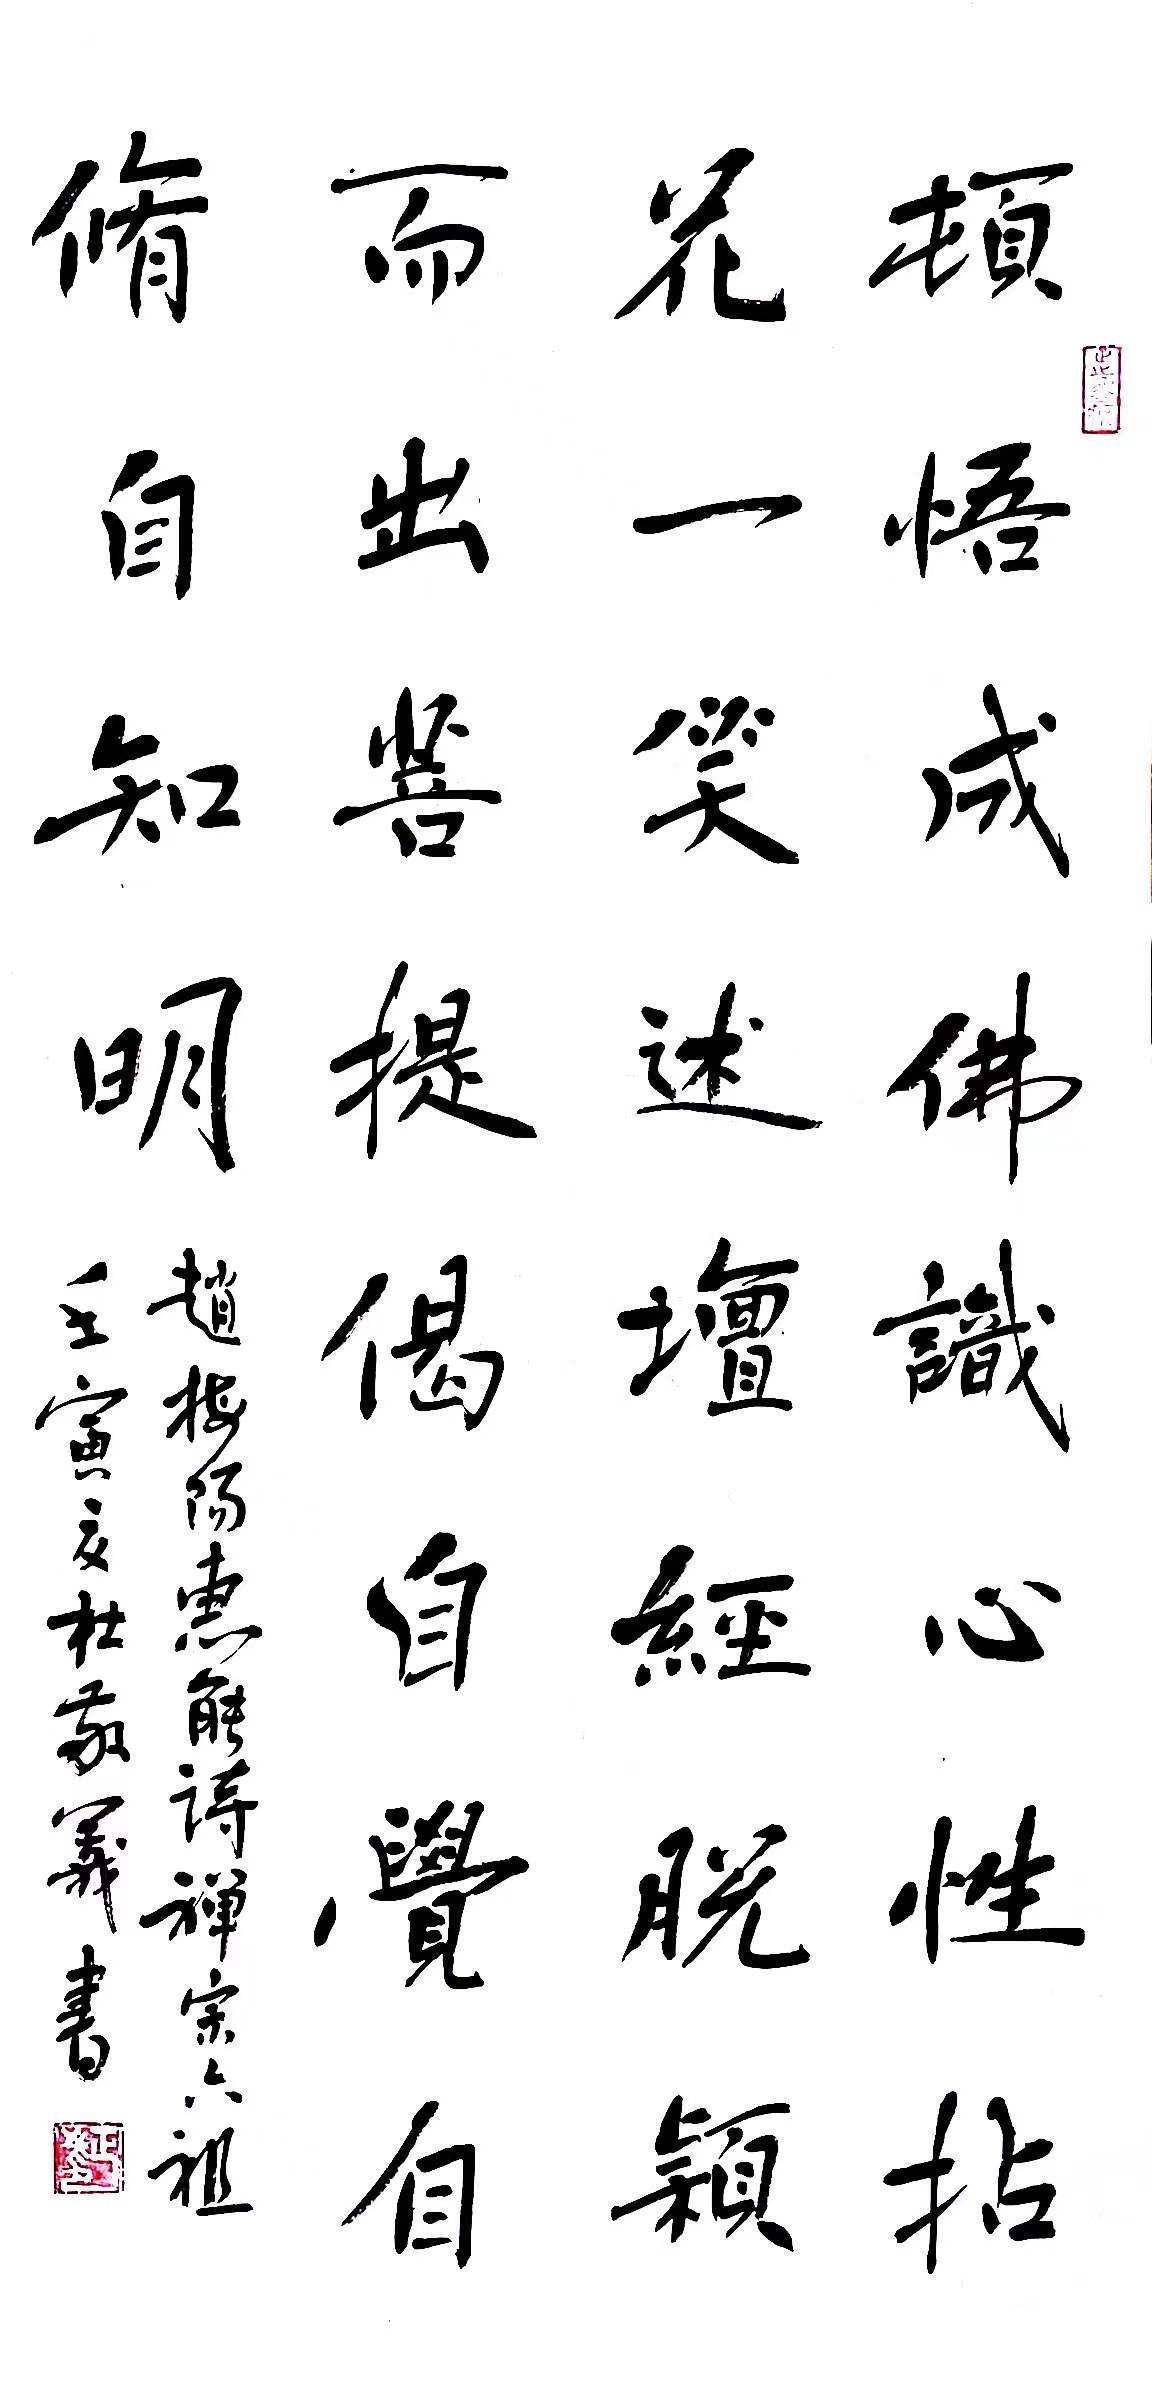 頓悟成佛識心性拈
花一笑述壇經脱穎
而出菩提偈自覺自
脩自知明
趙梅陽惠能詩禅宗六祖
壬寅亥杜敬義書